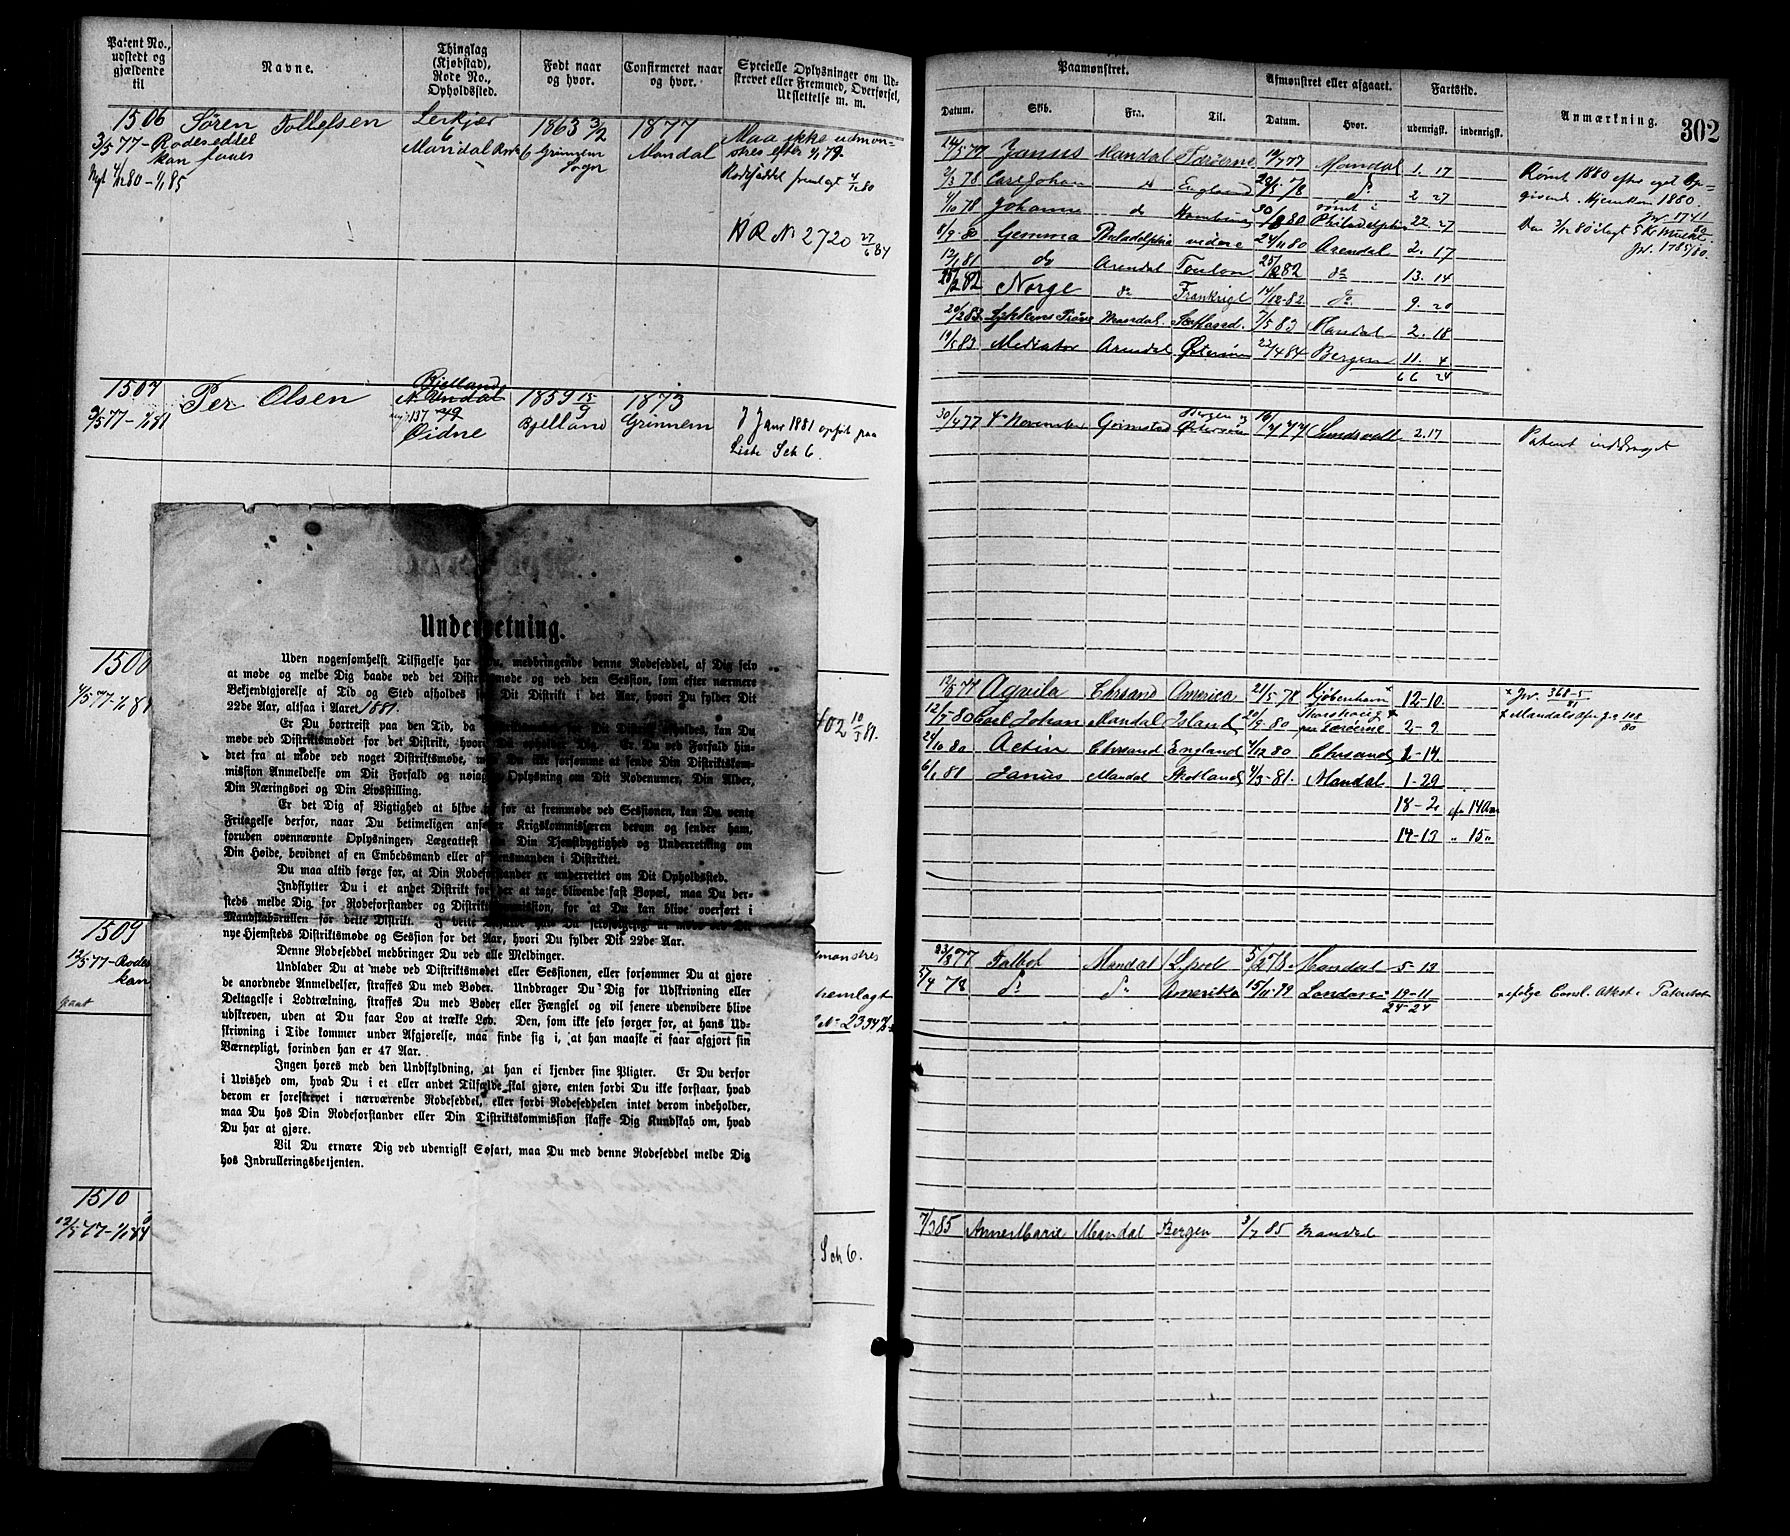 Patent No.,
udstedt og
gjældende
til
Navne.
Thinglag
(Kjøbstad),
Rode No.,
Opholdssted.
Født naar
og hvor.
Confirmeret naar
og hvor.
Specielle Oplysninger om Ud-
skrevet eller Fremmed, Overførsel,
Udslettelse m. m.
1506
3/5 77 - Rodeseddel
kan faaes
Nyt 4/12 80 - 1/1 85
Søren Tollefsen
Lerkjær
6
Mandal
1863 3/2
Grinnem
Sogn
1877
Mandal
Maa ikke udmøn-
stres efter 1/1 79.
Rodeseddel fremlagt 4/12 80
H R No 2720 27/6 84
1507
3/5 77 - 1/1 81
Per Olsen
Bjelland
N. Undal
137
Øidne
1859 15/9
Bjelland
1873
Grinnem
7 Janr 1881 opført paa
Liste Sch 6.
1508
4/5 77 - 1/1 81
402 10/3 81.
1509
12/5 77 - Rodes
kan
dmønstres
fremlagt
1510
12/5 77 - 1/1 84
Sch 6.
Underretning.
Uden nogensomhelst Tilsigelse har Du, medbringende denne Rodeseddel, af Dig selv
at møde og melde Dig baade ved det Distriktsmøde og ved den Session, som efter nærmere
Bekjendtgjørelse af Tid og Sted afholdes for Dit Distrikt i det Aar, hvori Du fylder Dit
22de Aar, altsaa i Aaret 1881.
Er Du bortreist paa den Tid, da Distriktsmødet for Dit Distrikt afholdes, kan Du
møde ved Distriktsmødet for det Distrikt, hvori Du opholder Dig. Er Du ved Forfald hin-
dret fra at møde ved noget Distriktsmøde, maa Du ikke forsømme at sende Din Distriktskom-
mission Anmeldelse om Dit Forfald og nøiagtig Oplysning om Dit Rodenummer, Din Alder,
Din Næringsvei og Din Livsstilling.
Er det Dig af Vigtighed at blive fri for at fremmøde ved Sessionen, kan Du vente
Fritagelse derfor, naar Du betimeligen ansøger Krigskommissæren derom og sender ham,
foruden ovennævnte Oplysninger, Lægeattest om Din Tjenstdygtighed og Underretning om
Din Høide, bevidnet af en Embedsmand eller af Lensmanden i Distriktet.
Du maa altid sørge for, at Din Rodeforstander er underrettet om Dit Opholdssted.
Indflytter Du i et andet Distrikt for der at tage blivende fast Bopæl, maa Du der-
steds melde Dig for Rodeforstander og Distriktskommission, for at Du kan blive overført i
Mandskabsrullen for dette Distrikt. I dette Tilfælde har Du selvfølgelig at møde ved Dit
nye Hjemsteds Distriktsmøde og Session for det Aar, hvori Du fylder Dit 22de Aar.
Denne Rodeseddel medbringer Du ved alle Meldinger.
Undlader Du at møde ved Distriktsmødet eller Sessionen, eller forsømmer Du at gjøre
de anordnede Anmeldelser, straffes Du med Bøder. Unddrager Du Dig for Udskrivning eller
Deltagelse i Lodtrækning, straffes Du med Bøder eller Fængsel og vil senere udenvidere blive
udskreven, uden at Du faar Lov at trække Lod. Den, som ikke selv sørger for, at hans Ud-
skrivning i Tide kommer under Afgjørelse, maa finde sig i, at han maaske ei faar afgjort sin
Værnepligt, forinden han er 47 Aar.
Ingen høres med den Undskyldning, at han ei kjender sine Pligter. Er Du derfor
i Uvished om, hvad Du i et eller andet Tilfælde skal gjøre, enten fordi Du ikke forstaar, hvad
derom er foreskrevet i nærværende Rodeseddel, eller fordi Rodeseddelen intet derom indeholder,
maa Du hos Din Rodeforstander eller Din Distriktskommission skaffe Dig Kundskab om, hvad
Du har at gjøre.
Vil Du ernære Dig ved udenrigsk Søfart, maa Du med denne Rodeseddel melde Dig
hos Indrulleringsbetjenten.
Paamønstret.
Afmønstret eller afgaaet.
Fartstid.
Anmærkning.
302
Datum. Skib. Fra. Til. Datum. Hvor. udenrigsk. indenrigsk.
14/5 77 Janus Mandal Færøerne 12/7 77 Mandal 1. 17
2/3 78 Carl Johan do England 29/5 78 do 2 27
4/10 78 Johanne do Hamburg 30/8 80 rømt i Philadelphia 22. 27
8/9 80 Gemma Philadelphia videre 24/11 80 Arendal 2. 17
12/1 81 do Arendal Toulon 25/2 82 do 13. 14
25/2 82 Norge do Frankrige 14/12 82 do 9. 20
20/2 83 Lykkens Prøve Mandal. Skotland. 7/5 83 Mandal 2. 18
19/5 83 Mediator Arendal Østersøen 22/4 84 Bergen 11. 4
66 24
Rømt 1880 efter eget Op-
givende. Hjemkom 1880.
Jr. 1741/80
Den 3/12 80 ilagt 5 Kr Mulkt.
Jr. 1785/80.
30/4 77 4de November Grimstad Bergen og Østersøen 16/7 77 Sundsvall 2. 17
Patent inddraget
12/5 77 Aqvila Chrsand America 21/5 78 Kjøbenhavn x 12-10.
12/7 80 Carl Johan Mandal Island 20/9 80 2-9
24/10 80 Activ Chrsand England 4/12 80 Chrsand 1-14
6/1 81 Janus Mandal Skotland 4/3 81. Mandal 1-29
18-2
14-13 " 15 "
x Jr. 368-5/81
23/8 77 Talbot Mandal Lpool 5/2 78 Mandal 5-13
17/4 78 do do Amerika 15/11 79 London 19-11
24-24
7/3 85 Anne Marie Mandal Bergen 3/7 85 Mandal